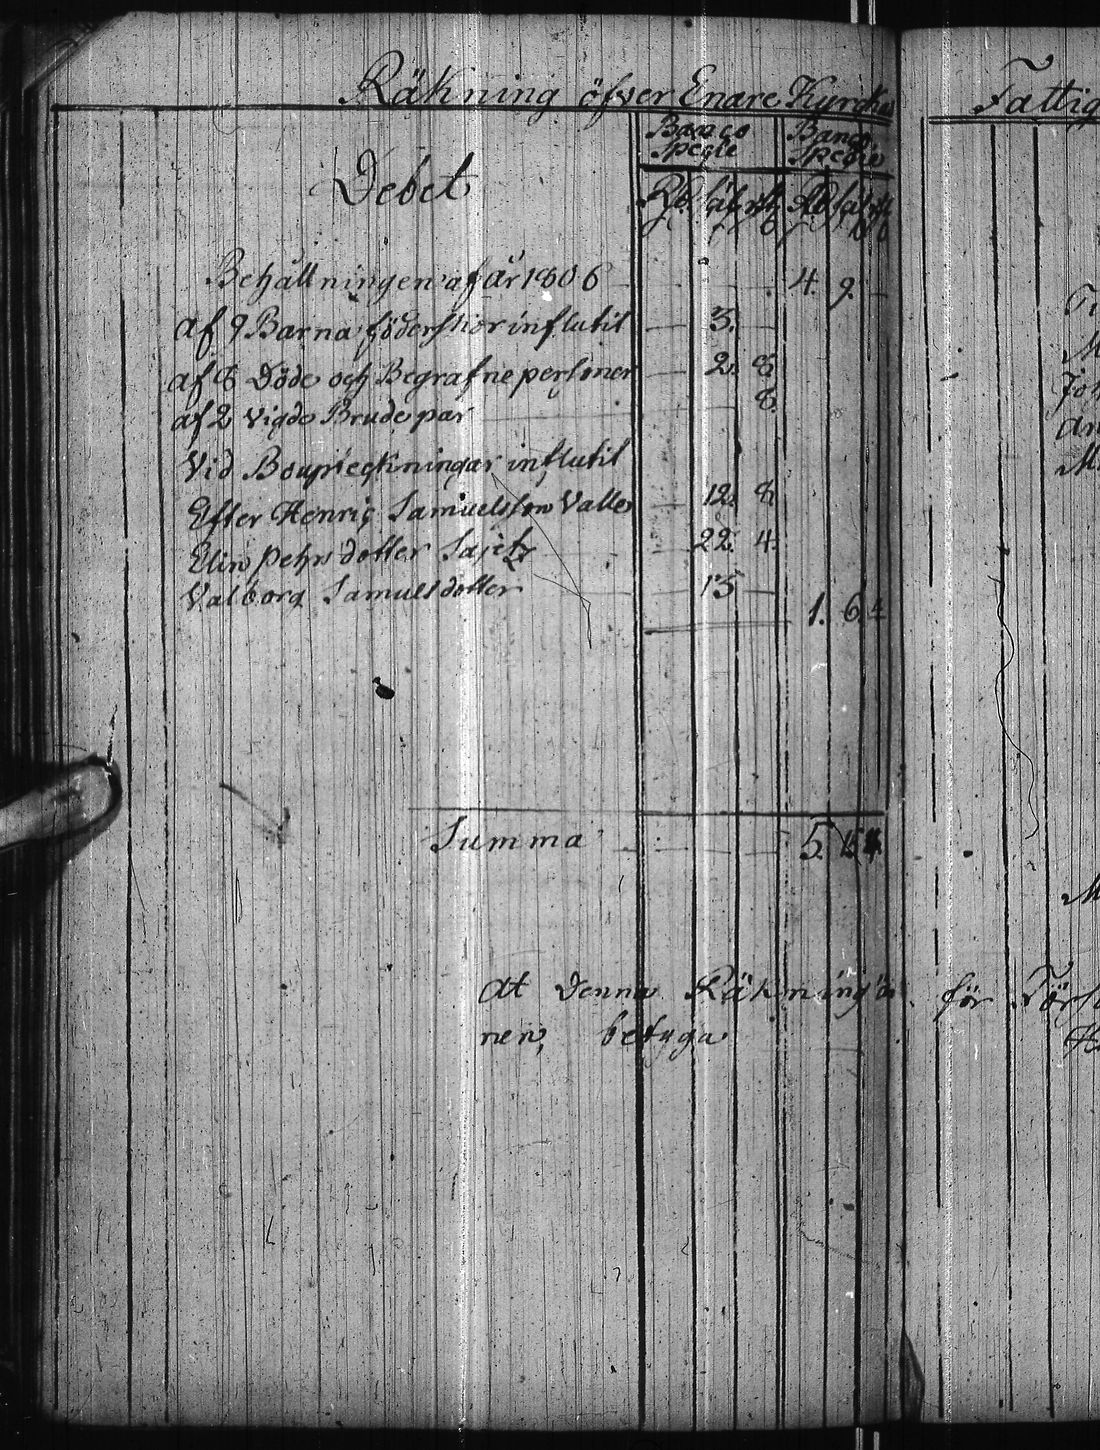 Räkning öfver Enare Kyrckos
Fattig
Banco Specie Banco Specie
Debet
Rd. sk. rst. Rd. sk. rst.
Behållningen af år 1806 4. 9. —
af 9 Barna föderskior influtit 3. —
af 8 Döde och Begrafne personer 2. 8
af 2 Vigde Brude par 8.
Vid Boupteckningar influtit
Efter Henric Samuelsson Valle 12. 8
Elin Pehrs dotter Sajetz 22. 4.
Valborg Samuels dotter 15 —
1. 6. 4
Summa 5. 15. 4.
at denna Räkning är för
nen, betyga